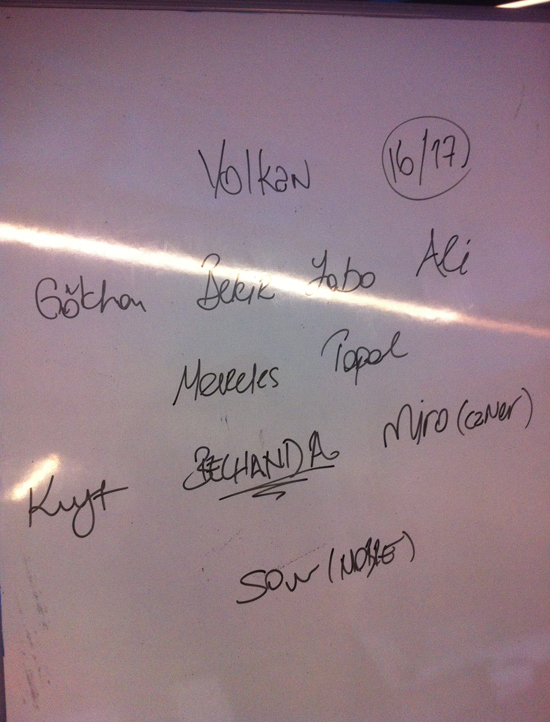 Volkan 16/17
Gökhan Bekir Yobo Ali
Meireles Topal
Kuyt BELHANDA Miro (Caner)
SOW (NOBRE)